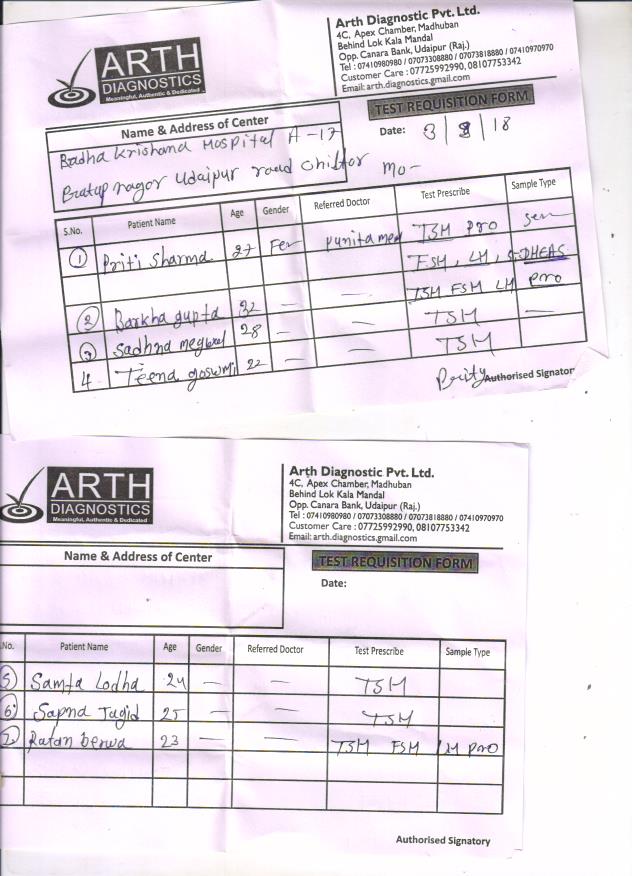 ARTH
DIAGNOSTICS
Meaningful, Authentic & Dedicated
Arth Diagnostic Pvt. Ltd.
4C, Apex Chamber, Madhuban
Behind Lok Kala Mandal
Opp. Canara Bank, Udaipur (Raj.)
Tel : 07410980980 / 07073308880 / 07073818880 / 07410970970
Customer Care : 07725992990, 08107753342
Email: arth.diagnostics.gmail.com
TEST REQUISITION FORM
Name & Address of Center
Date: 3/8/18
Radha Krishana Hospital A-17
Pratap nagar Udaipur road Chittor mo-
S.No. Patient Name Age Gender Referred Doctor Test Prescribe Sample Type
1 Priti Sharma 27 Fer punita med TSM PRO ser
FSM, LM, DHEAS
2 Barkha gupta 32 — — TSM FSM LM PRO
3 Sadhna 28 — — TSM —
4 Teena goswmi 22 — — TSM
Authorised Signator
ARTH
DIAGNOSTICS
Meaningful, Authentic & Dedicated
Arth Diagnostic Pvt. Ltd.
4C, Apex Chamber, Madhuban
Behind Lok Kala Mandal
Opp. Canara Bank, Udaipur (Raj.)
Tel : 07410980980 / 07073308880 / 07073818880 / 07410970970
Customer Care : 07725992990, 08107753342
Email: arth.diagnostics.gmail.com
Name & Address of Center
TEST REQUISITION FORM
Date:
.No. Patient Name Age Gender Referred Doctor Test Prescribe Sample Type
5 Samta Lodha 24 — — TSM
6 Sapna Tagid 25 — — TSM
7 Ratan berwa 23 — — TSM FSM LM PRO
Authorised Signatory